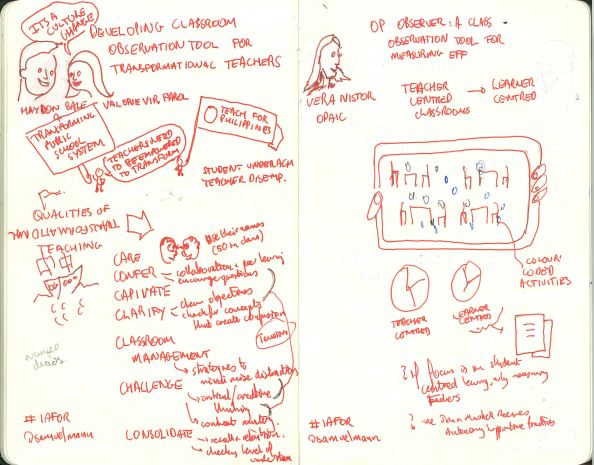 ITS A
CULTURE
CHANGE
DEVELOPING CLASSROOM
OBSERVATION TOOL FOR
TRANSFORMATIONAL TEACHERS
HAYDON BALE
A
TRANSFORMING
PUBLIC
SCHOOL
SYSTEM
TEACHERS NEED
TO BE EMPOWERED
TO TRANSFORM
TEACH FOR
PHILIPPINES
STUDENT UNDERACH
TEACHER DISEMP.
QUALITIES OF
TRANSFORMATIONAL
TEACHING
CARE
use their names
(50 in class)
CONFER
collaboration + peer learning
encourage questions
CAPTIVATE
CLARIFY
clear objectives
check for concepts
that create confusion
Tensions
CLASSROOM
MANAGEMENT
strategies to
minimise distractions
CHALLENGE
critical/creative
thinking
content mastery
CONSOLIDATE
recall + retention.
checking level of
understan
# IAFOR
@samuelmann
OP OBSERVER : A CLASS
OBSERVATION TOOL FOR
MEASURING EFF
VERA NISTOR
OPAIC
TEACHER
CENTRED
CLASSROOMS
LEARNER
CENTRED
COLOUR
CODED
ACTIVITIES
TEACHER
CENTRED
LEARNER
CENTRED
? if focus is on student
centred learning, why measuring
teachers
? see
Autonomy supportive practices
# IAFOR
@samuelmann